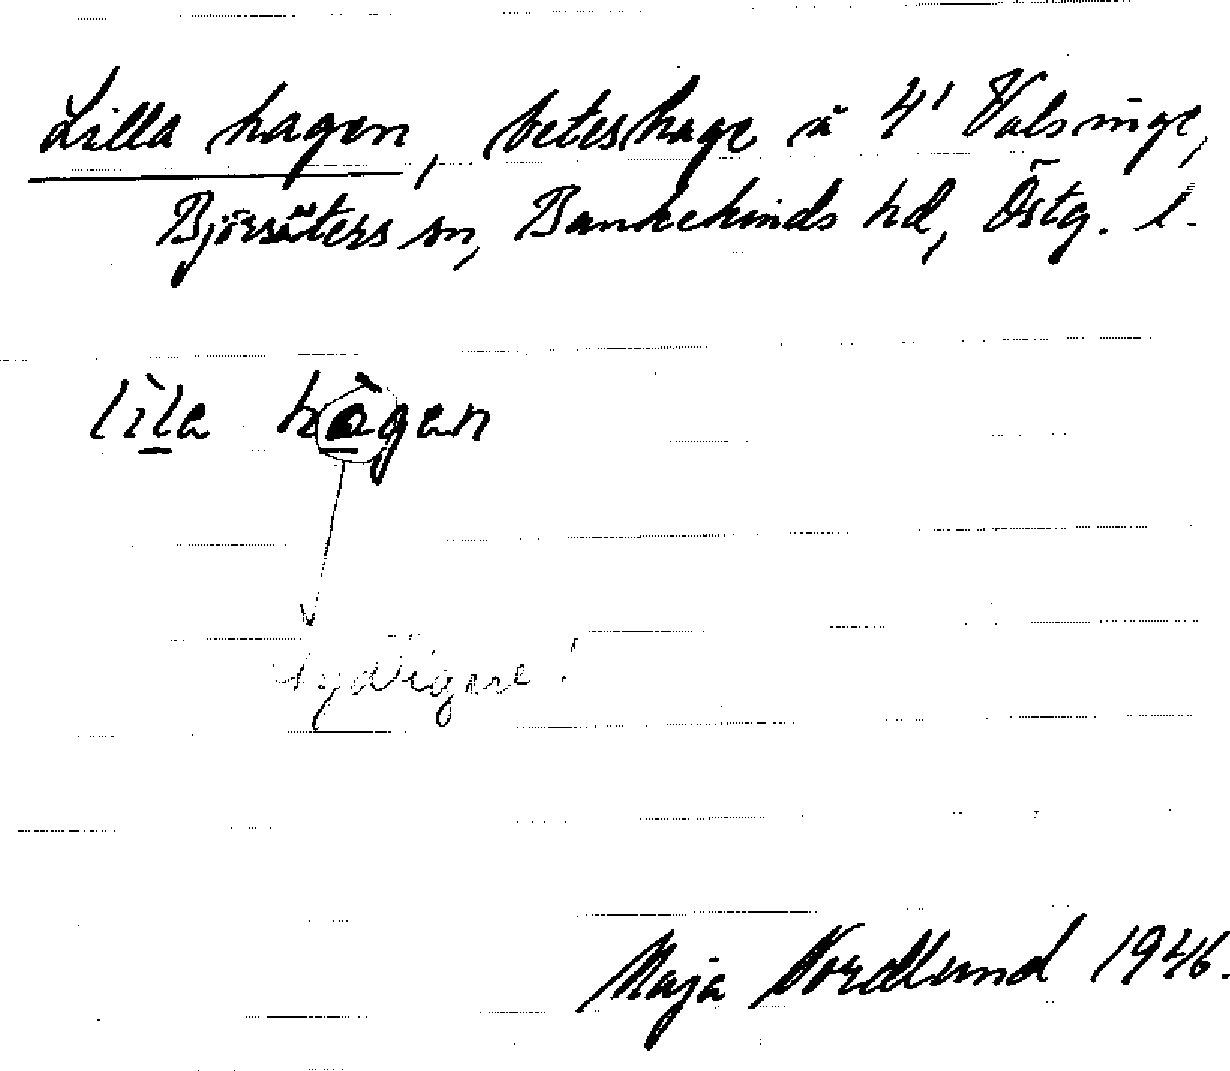 Lilla hagen, beteshage å 4¹ Valsinge,
Björsäters sn, Bankekinds hd, Östg. l.
lìla hàgen
tydligare!
Maja Nordlund 1946.